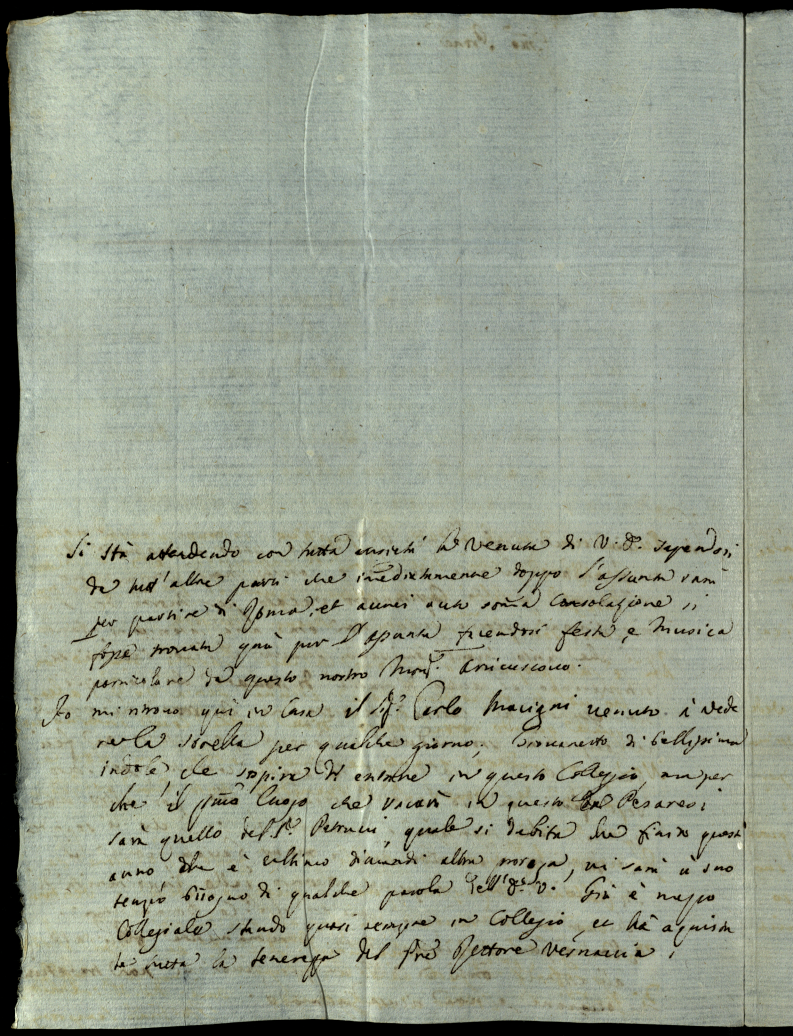 Si stà attendendo con tutta ansietà la venuta di V. Sª. sapendosi
da tutt'altre parti che imediatamente doppo l'assunta sarà
per partire di Roma, et averei auto somª consolazione si
fosse trovata quà per l'assunta facendosi festa e musica
particolare da questo nostro Monsʳ. Arcivescovo.
Io mi ritrovo quì in Casa il Sigʳ. Carlo Macigni venuto à vede
re la sorella per qualche giorno; Giovanetto di bellissima
indole che sospira di entrare in questo Collegio, mà per
che il pmo luogo che vacarà in questo de Pesaresi
sarà quello del Petrucci, quale si dubita che finito quest'
anno che è ultimo dimandi altra proroga, vi sarà à suo
tempo bisogno di qualche parola dell' V. Già è mezzo
Collegiale stando quasi sempre in Collegio, et hà aquista
ta tutta la tenerezza del Pre Rettore Vernaccia;